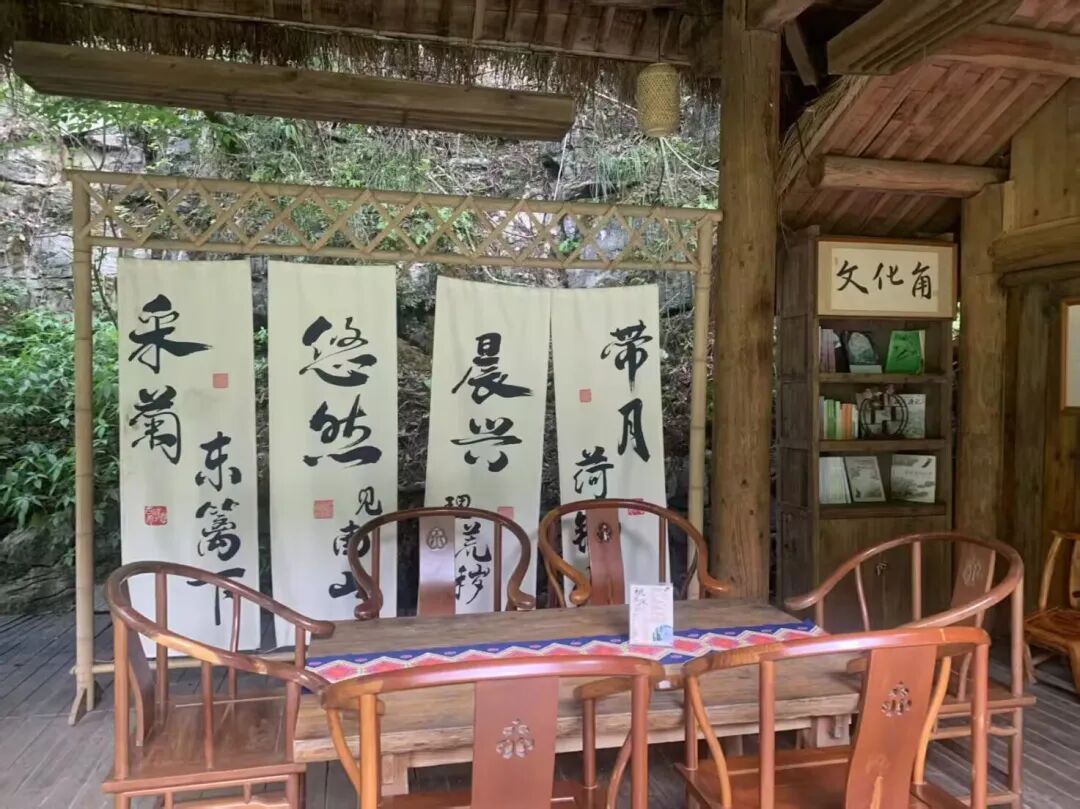 采菊
东篱下
悠然
见南山
晨兴
理荒秽
带月
荷锄
文化角